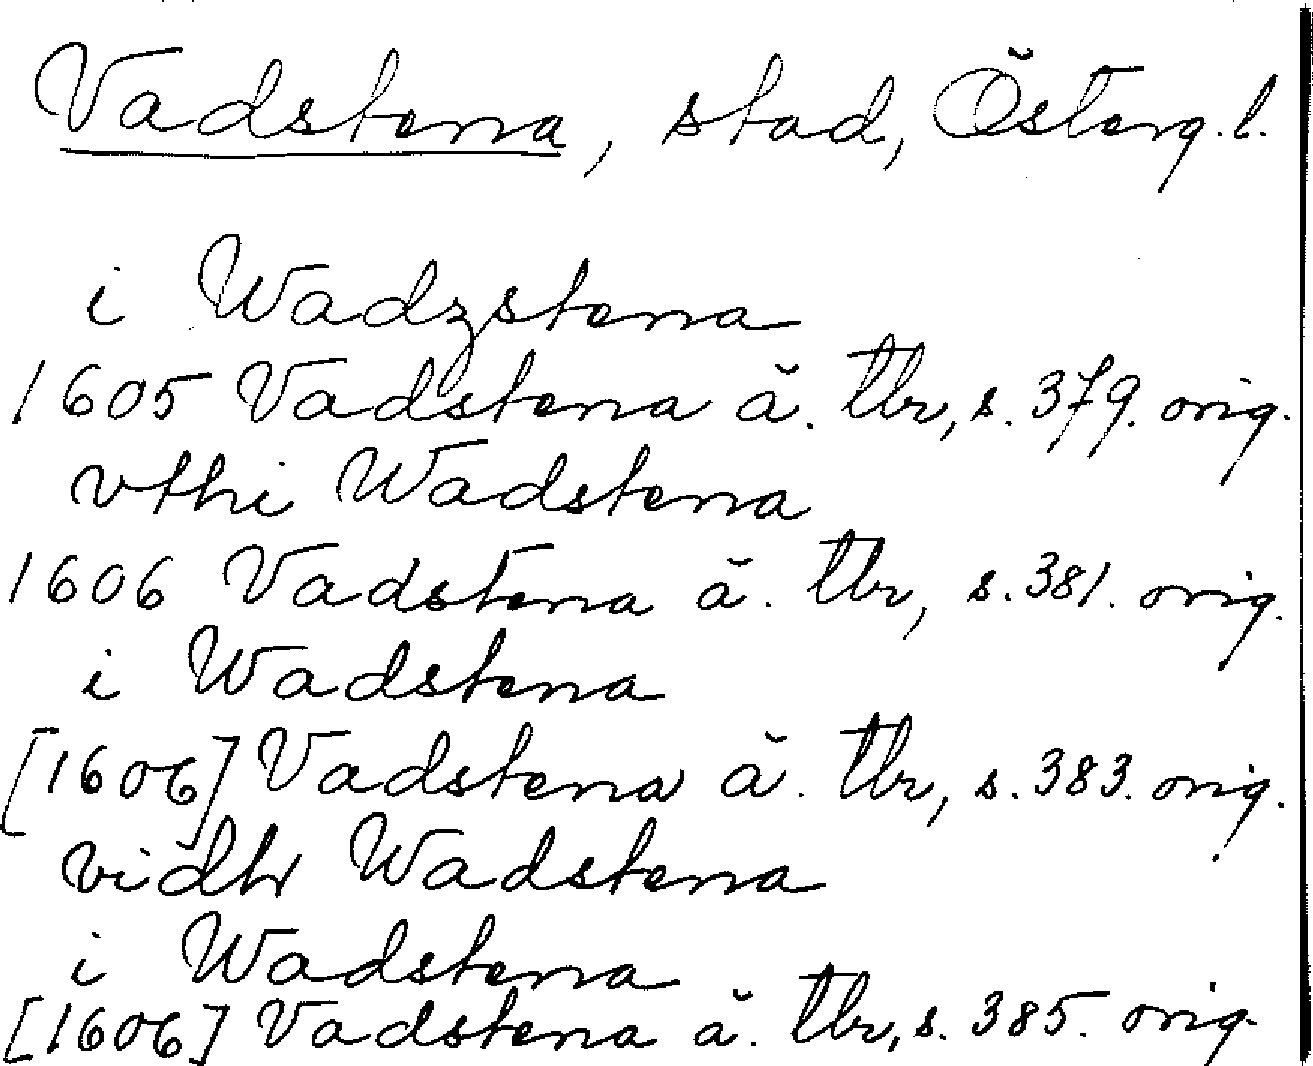 Vadstena, stad, Österg. l.
i Wadzstena
1605 Vadstena ä. tbr, s. 379. orig.
vthi Wadstena
1606 Vadstena ä. tbr, s. 381. orig.
i Wadstena
[1606] Vadstena ä. tbr, s. 383. orig.
vidh Wadstena
i Wadstena
[1606] Vadstena ä. tbr, s. 385. orig.